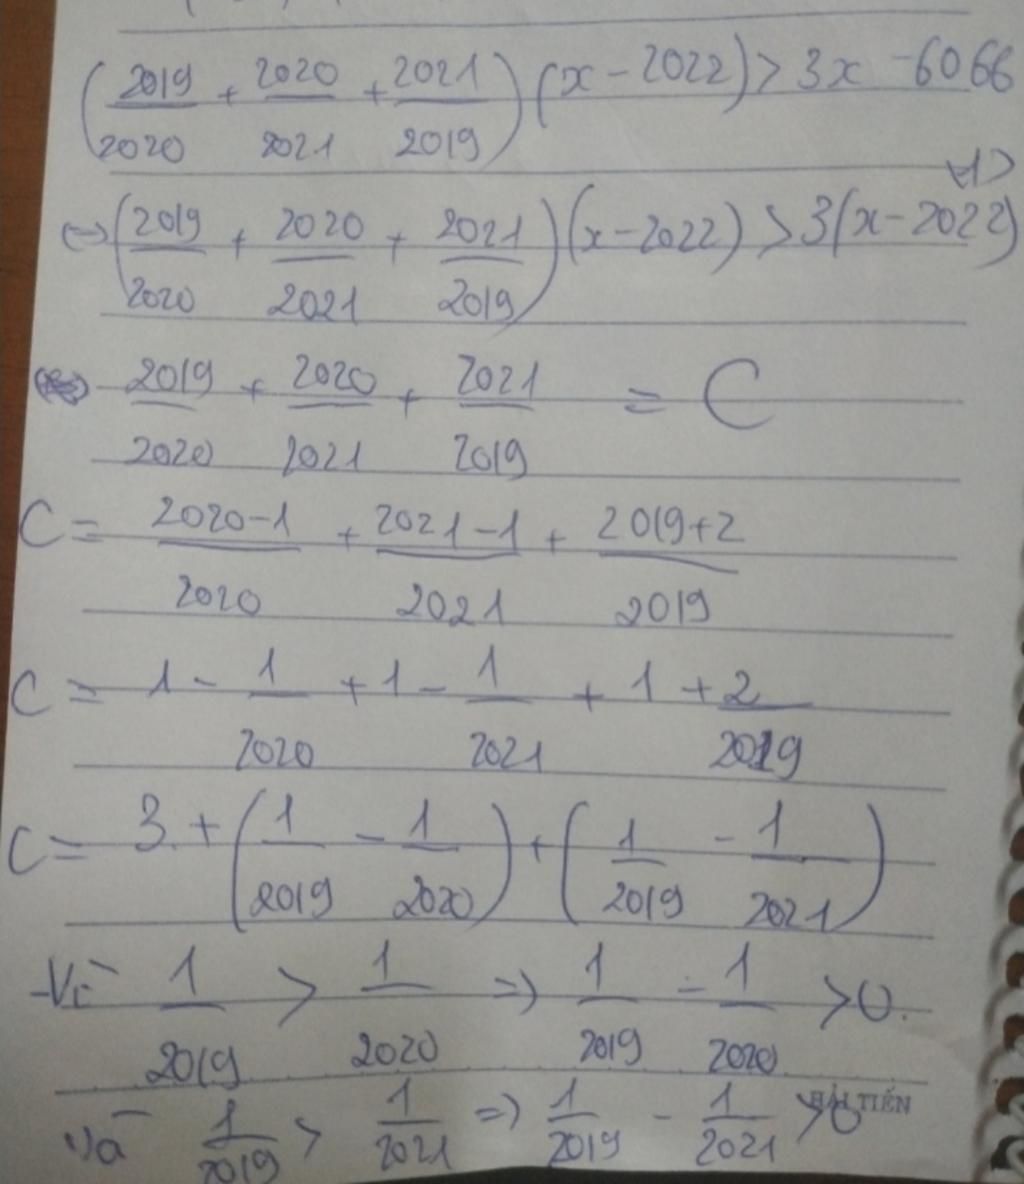 (2019/2020 + 2020/2021 + 2021/2019)(x - 2022) > 3x - 6066
<1>
<=> (2019/2020 + 2020/2021 + 2021/2019)(x - 2022) > 3(x - 2022)
2019/2020 + 2020/2021 + 2021/2019 = C
C = 2020-1/2020 + 2021-1/2021 + 2019+2/2019
C = 1 - 1/2020 + 1 - 1/2021 + 1 + 2/2019
C = 3 + (1/2019 - 1/2020) + (1/2019 - 1/2021)
Vì 1/2019 > 1/2020 => 1/2019 - 1/2020 > 0.
Và 1/2019 > 1/2021 => 1/2019 - 1/2021 > 0
HẢI TIẾN